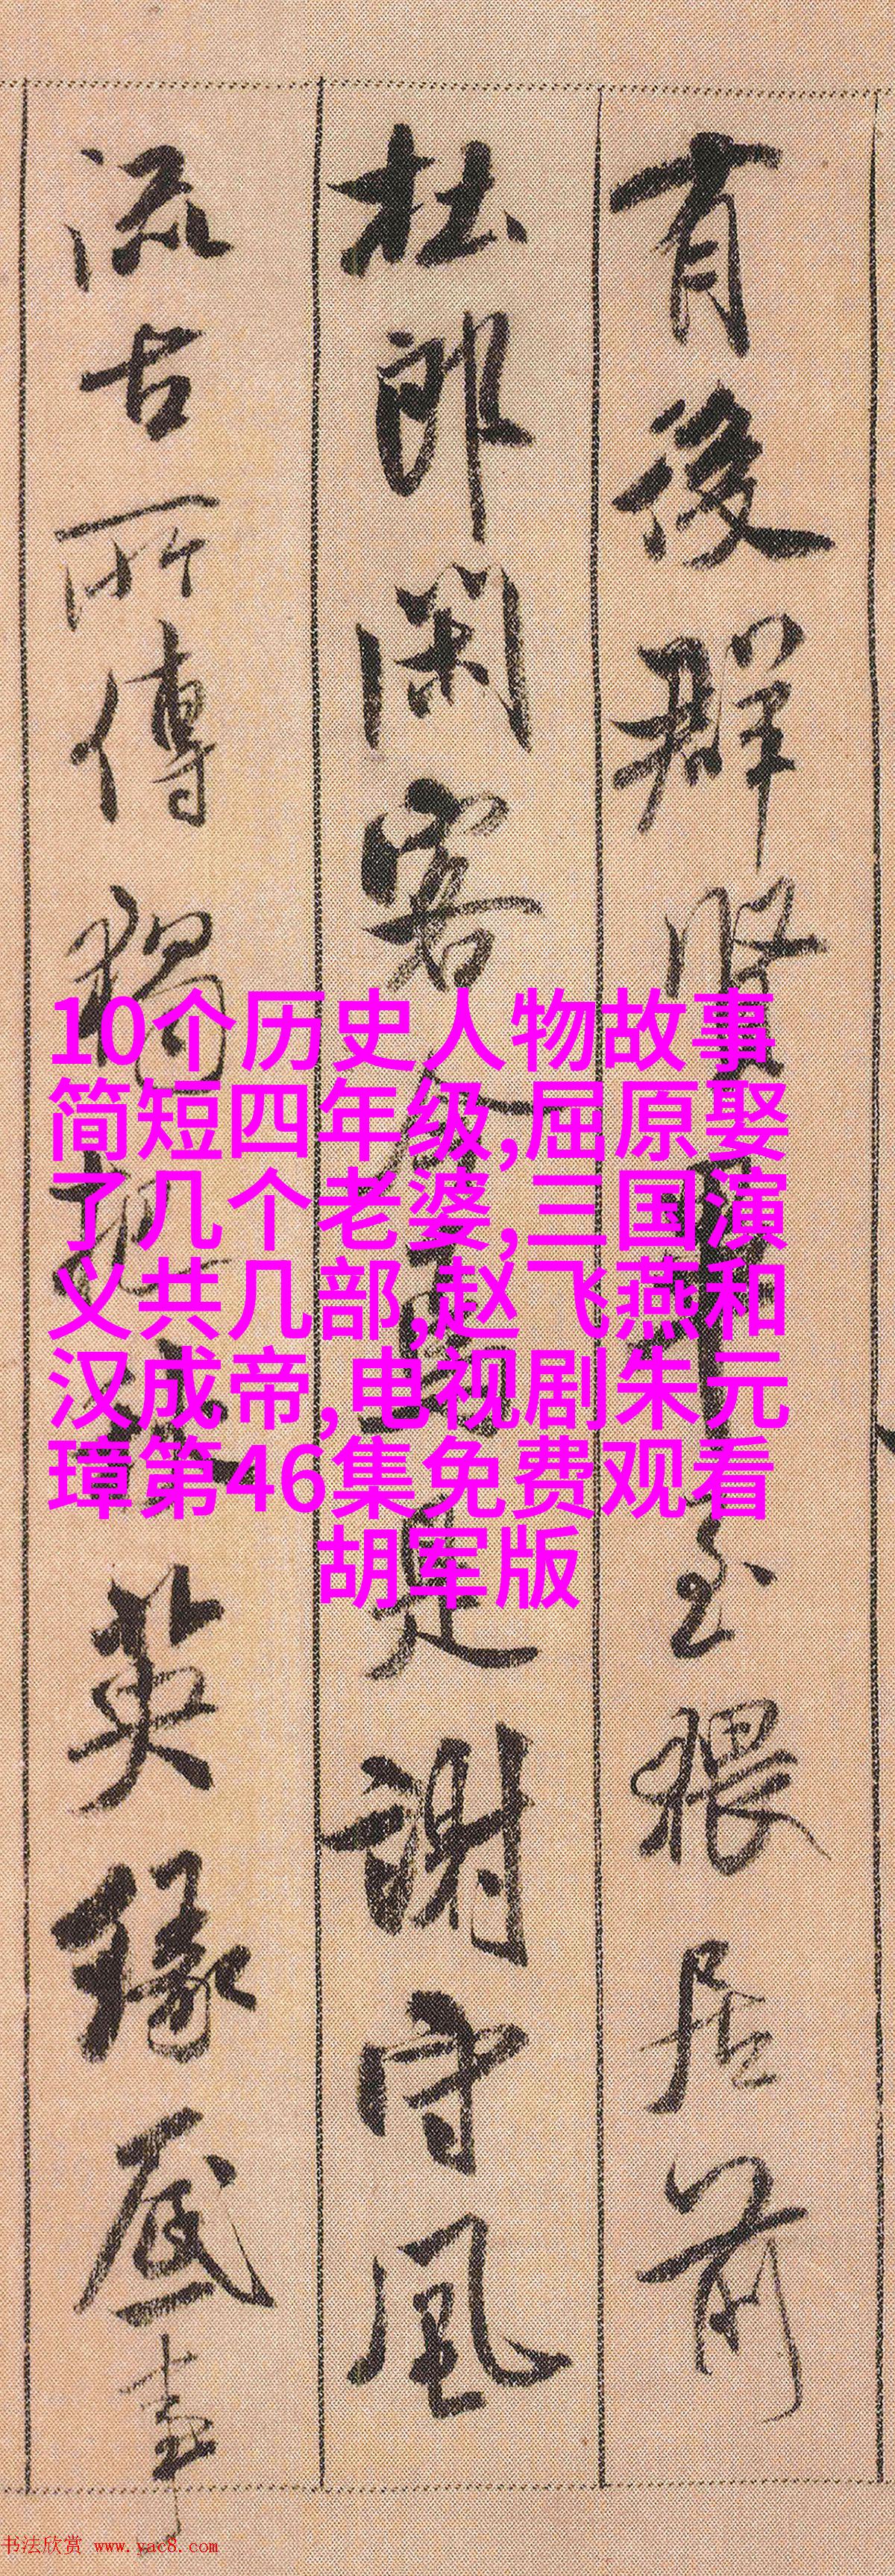 有後群賢
至猥居前
杜郎闲客
是謝守風
流古所傳獨把
英豫启事
10个历史人物故事
简短四年级,屈原娶
了几个老婆,三国演
义共几部,赵飞燕和
汉成帝,电视剧朱元
璋第46集免费观看
胡军版
书法欣赏 www.yac8.com